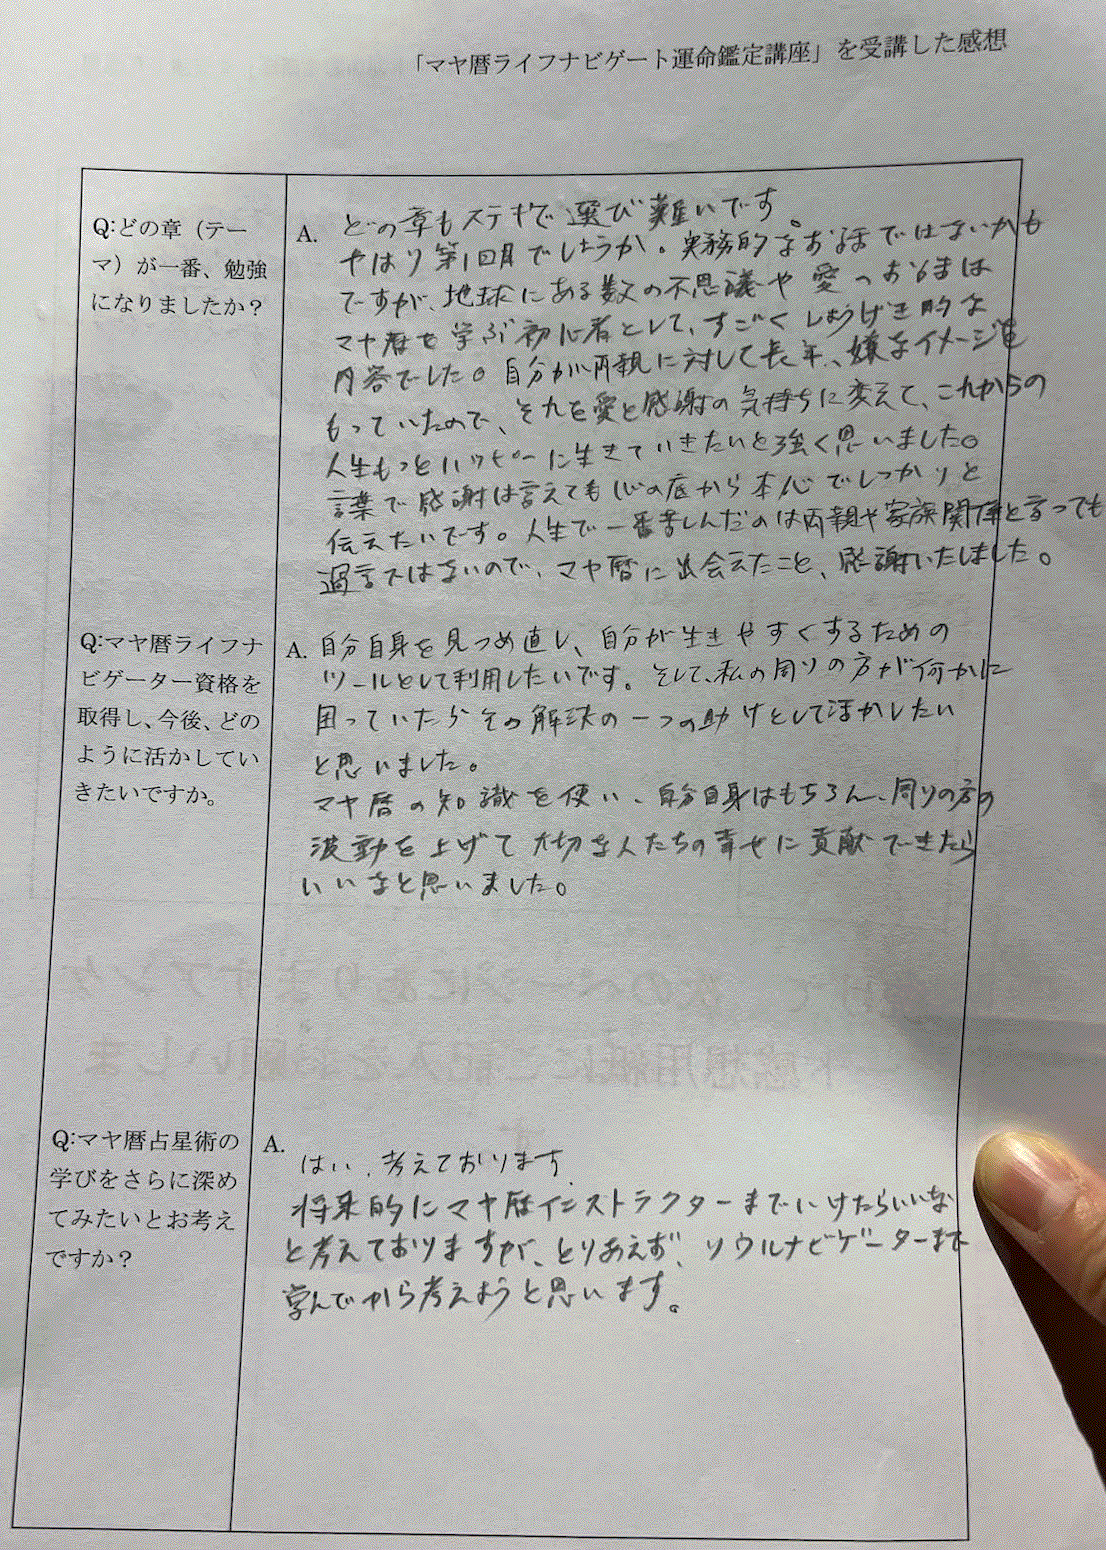 「マヤ暦ライフナビゲート運命鑑定講座」を受講した感想
Q:どの章（テー
マ）が一番、勉強
になりましたか？
A. どの章もステキで選び難いです。
やはり第1回目でしょうか。実務的なお話ではないかも
ですが、地球にある数の不思議や愛のお話は
マヤ暦を学ぶ初心者として、すごくしょうげき的な
内容でした。自分が両親に対して長年、嫌なイメージを
もっていたので、それを愛と感謝の気持ちに変えて、これからの
人生もっとハッピーに生きていきたいと強く思いました。
言葉で感謝は言えても心の底から本心でしっかりと
伝えたいです。人生で一番苦しんだのは両親や家族関係と言っても
過言ではないので、マヤ暦に出会えたこと、感謝いたしました。
Q:マヤ暦ライフナ
ビゲーター資格を
取得し、今後、どの
ように活かしてい
きたいですか。
A. 自分自身を見つめ直し、自分が生きやすくするための
ツールとして利用したいです。そして、私の周りの方が何かに
困っていたらその解決の一つの助けとして活かしたい
と思いました。
マヤ暦の知識を使い、自分自身はもちろん、周りの方の
波動を上げて大切な人たちの幸せに貢献できたら
いいなと思いました。
Q:マヤ暦占星術の
学びをさらに深め
てみたいとお考え
ですか？
A.
はい、考えております。
将来的にマヤ暦インストラクターまでいけたらいいな
と考えておりますが、とりあえず、ソウルナビゲーターまで
学んでから考えようと思います。